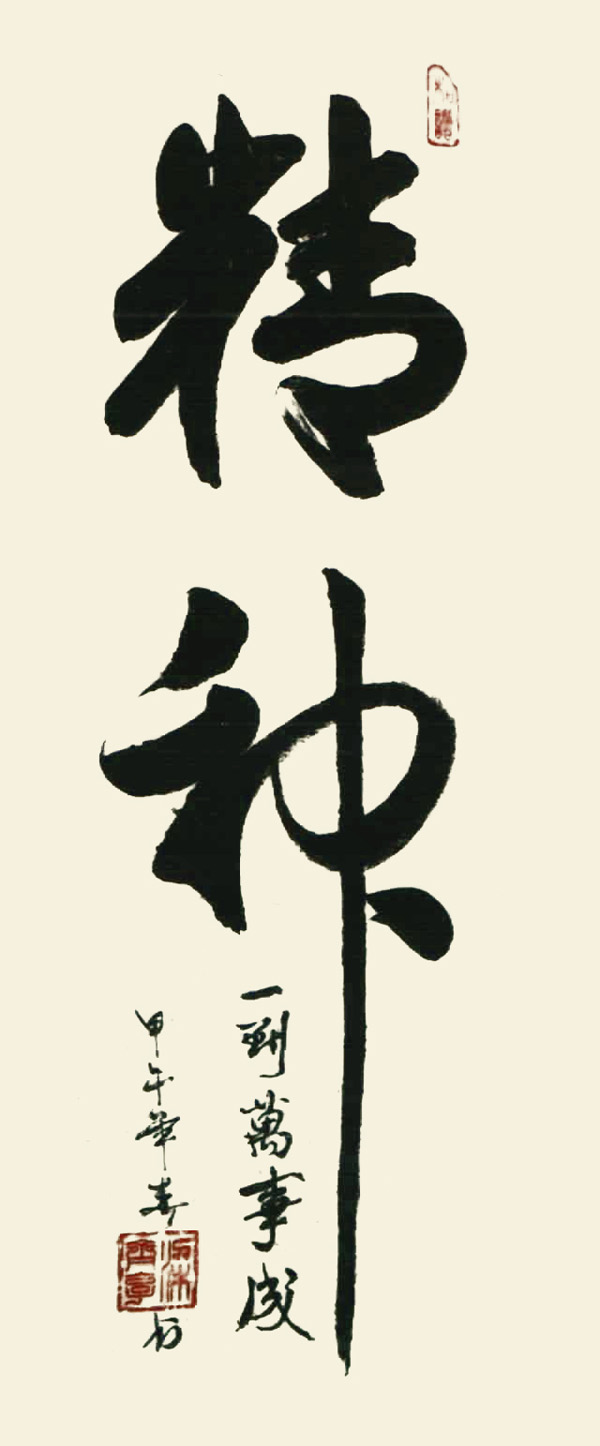 精神
一到萬事成
甲午年春